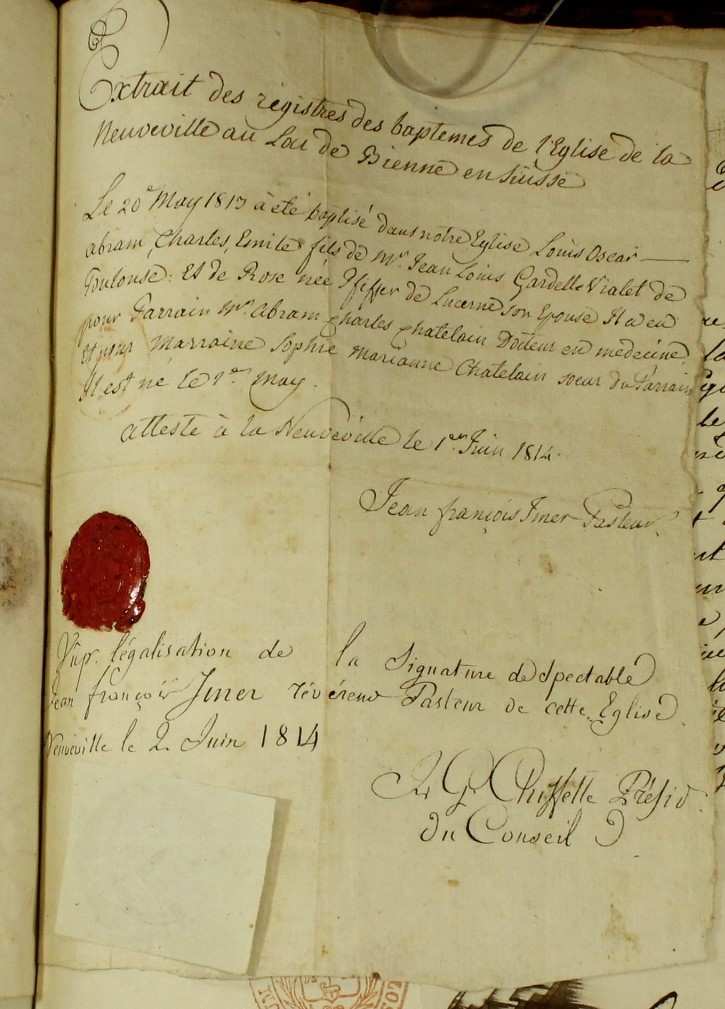 Extrait des régistres des baptemes de l'Eglise de la
Neuveville au Lac de Bienne en Suisse
Le 20e May 1813 à été baptisé dans notre Eglise Louis Oscar
abram, Charles, Emile fils de Mr. Jean Louis Gardelle Vialet de
Toulouse: Et de Rose née Pfiffer de Lucerne son Epouse Il a eu
pour Parrain Mr. Abram Charles Chatelain Docteur en medecine
et pour Marraine Sophie Marianne Chatelain soeur du Parrain
Il est ne le 1er May.
atteste à la Neuveville le 1er Juin 1814.
Jean françois Imer Pasteur.
légalisation de la Signature de Spectable
Jean françois Imer révérend Pasteur de cette Eglise.
Neuveville le 2. Juin 1814
Chiffelle Présid
du Conseil